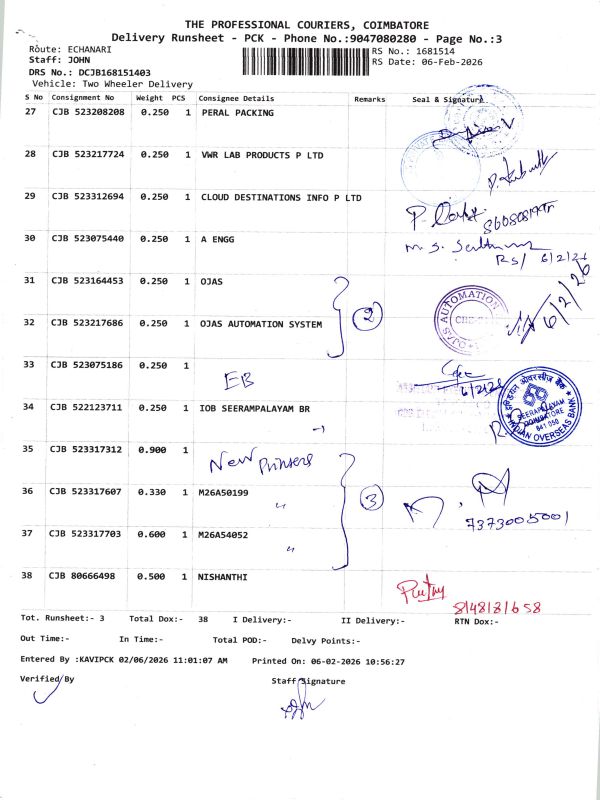 THE PROFESSIONAL COURIERS, COIMBATORE
Delivery Runsheet - PCK - Phone No.:9047080280 - Page No.:3
Route: ECHANARI
RS No.: 1681514
Staff: JOHN
RS Date: 06-Feb-2026
DRS No.: DCJB168151403
Vehicle: Two Wheeler Delivery
S No Consignment No Weight PCS Consignee Details Remarks Seal & Signature
27 CJB 523208208 0.250 1 PERAL PACKING
28 CJB 523217724 0.250 1 VWR LAB PRODUCTS P LTD
29 CJB 523312694 0.250 1 CLOUD DESTINATIONS INFO P LTD
30 CJB 523075440 0.250 1 A ENGG
M. S.
RS/ 6/2/26
31 CJB 523164453 0.250 1 OJAS
2
OJAS AUTOMATION
6/2/26
32 CJB 523217686 0.250 1 OJAS AUTOMATION SYSTEM
33 CJB 523075186 0.250 1
EB
6/2/26
34 CJB 522123711 0.250 1 IOB SEERAMPALAYAM BR
इण्डियन ओवरसीज़ बैंक
SEERAPALAYAM
COIMBATORE
641 050
INDIAN OVERSEAS BANK
35 CJB 523317312 0.900 1
New Printers
36 CJB 523317607 0.330 1 M26A50199
"
3
7373005001
37 CJB 523317703 0.600 1 M26A54052
"
38 CJB 80666498 0.500 1 NISHANTHI
8148131658
Tot. Runsheet:- 3 Total Dox:- 38 I Delivery:- II Delivery:- RTN Dox:-
Out Time:- In Time:- Total POD:- Delvy Points:-
Entered By :KAVIPCK 02/06/2026 11:01:07 AM Printed On: 06-02-2026 10:56:27
Verified By Staff Signature